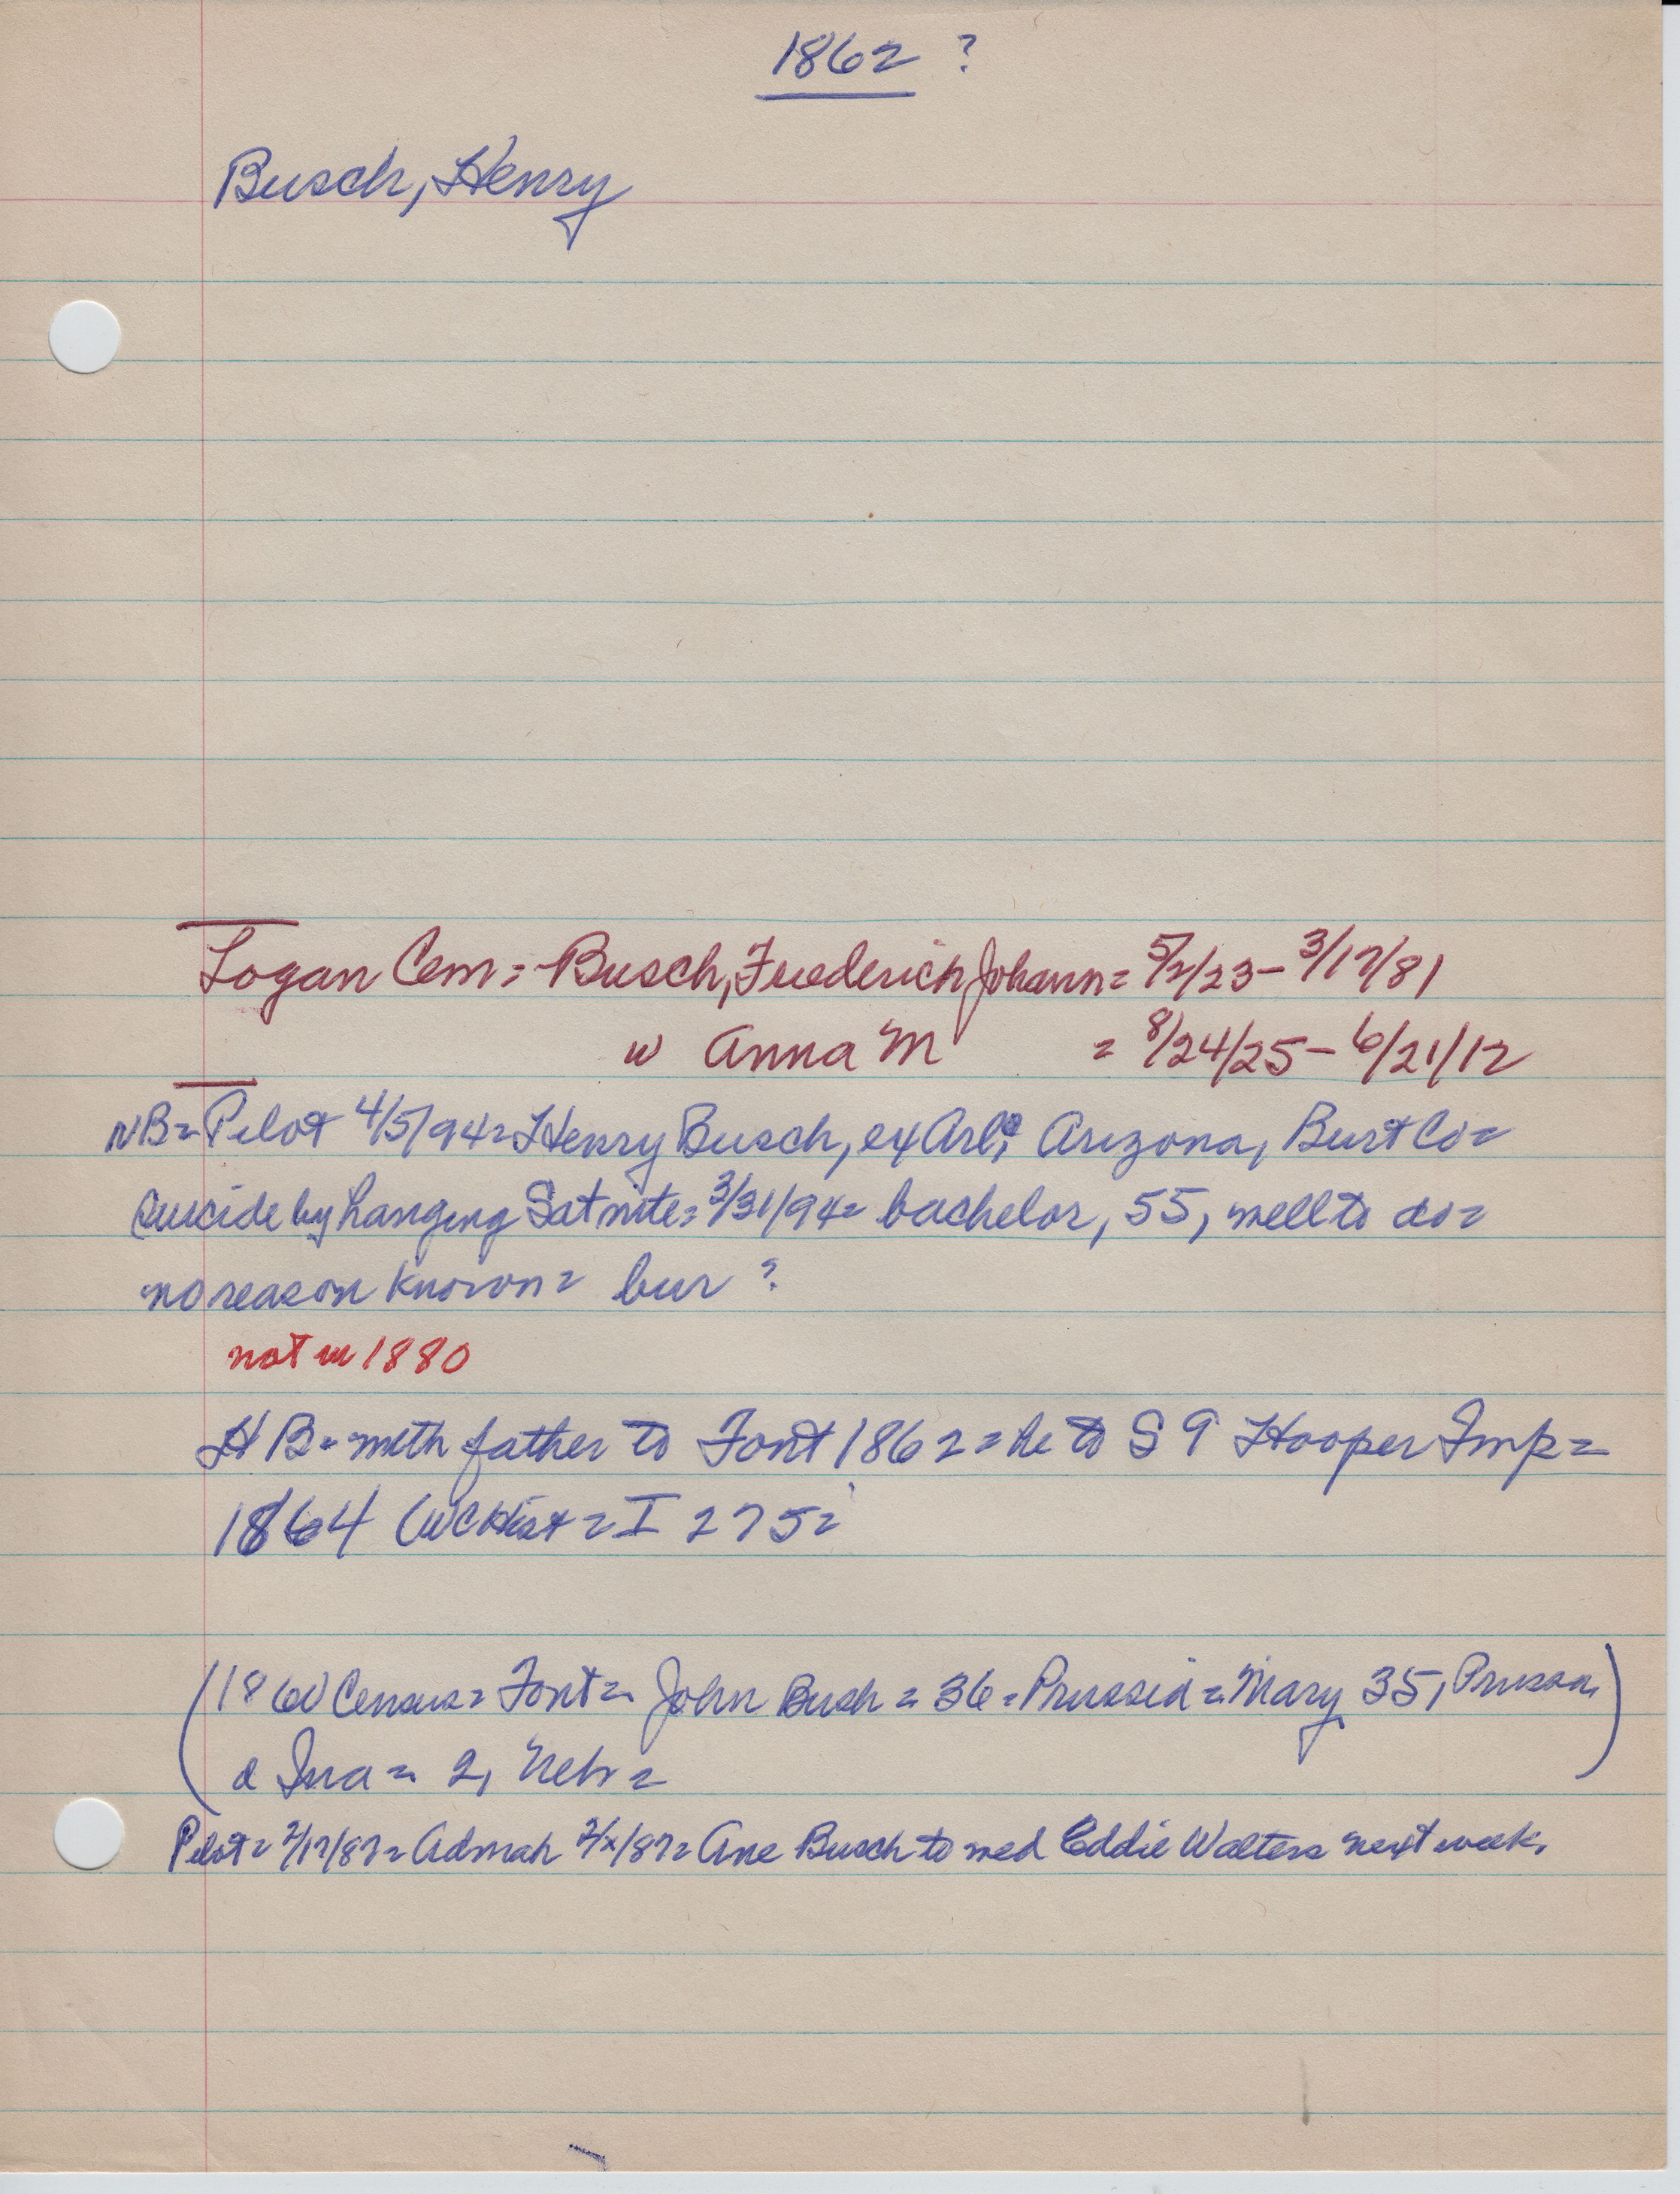 1862 ?
Busch, Henry
Logan Cem = Busch, Frederich Johann = 5/2/23 - 3/17/81
w Anna M = 8/24/25 - 6/21/12
NB = Pilot 4/5/94 = Henry Busch, ex Arl; Arizona, Burt Co =
suicide by hanging Sat nite = 3/31/94 = bachelor, 55, well to do =
no reason known = bur ?
not in 1880
H B = with father to Font 1862 = he to S 9 Hooper Imp =
1864 (WC Hist = I 275 =
(1860 Census = Font = John Bush = 36 = Prussia = Mary 35, Prussia,
d Ina = 2, Neb = )
Pilot = 2/17/87 = Admah 2/x/87 = Ane Busch to wed Eddie Walters next week.